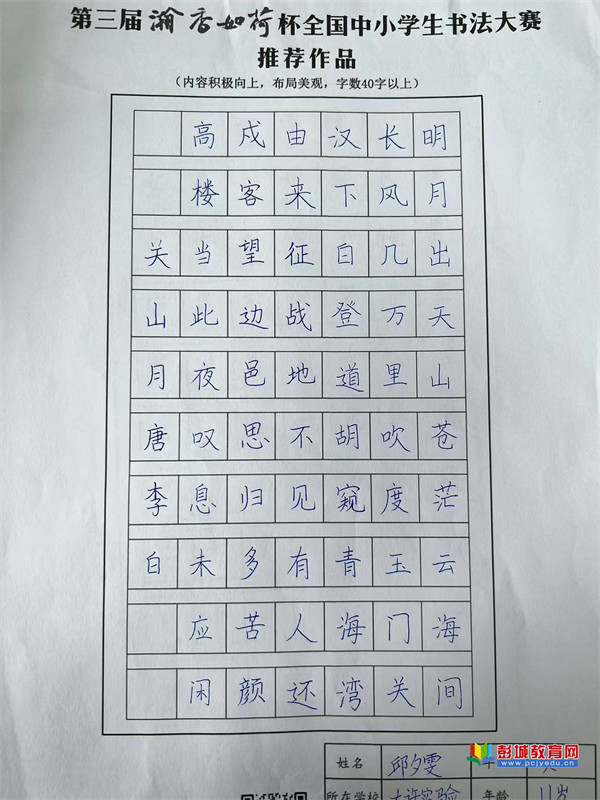 第三届瀚香如荷杯全国中小学生书法大赛
推荐作品
（内容积极向上，布局美观，字数40字以上）
明月出天山苍茫云海间
长风几万里吹度玉门关
汉下白登道胡窥青海湾
由来征战地不见有人还
戍客望边邑思归多苦颜
高楼当此夜叹息未应闲
关山月唐李白
姓名 邱夕雯
所在学校 大许实验 年龄 11岁
彭城教育网